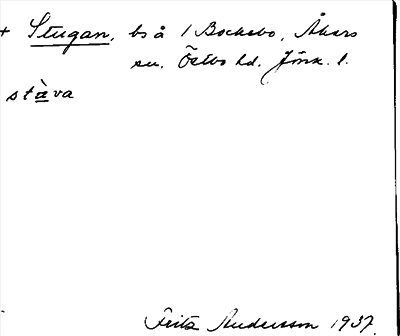 + Stugan, bs å 1 Bockebo, Åkers
sn. Östbo hd. Jönk. l.
stàva
Fritz Andersson 1937.